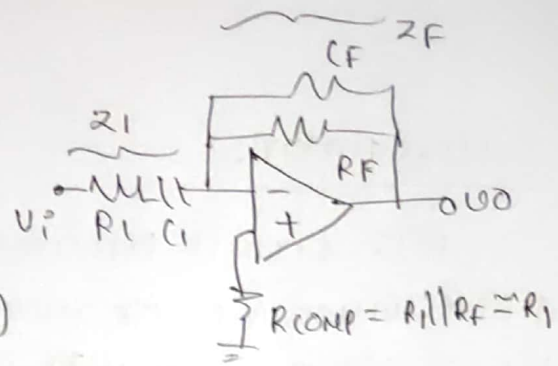 ZF
CF
Z1
RF
-
+
Vi R1 C1
VO
)
RCOMP = R1||RF ≃ R1